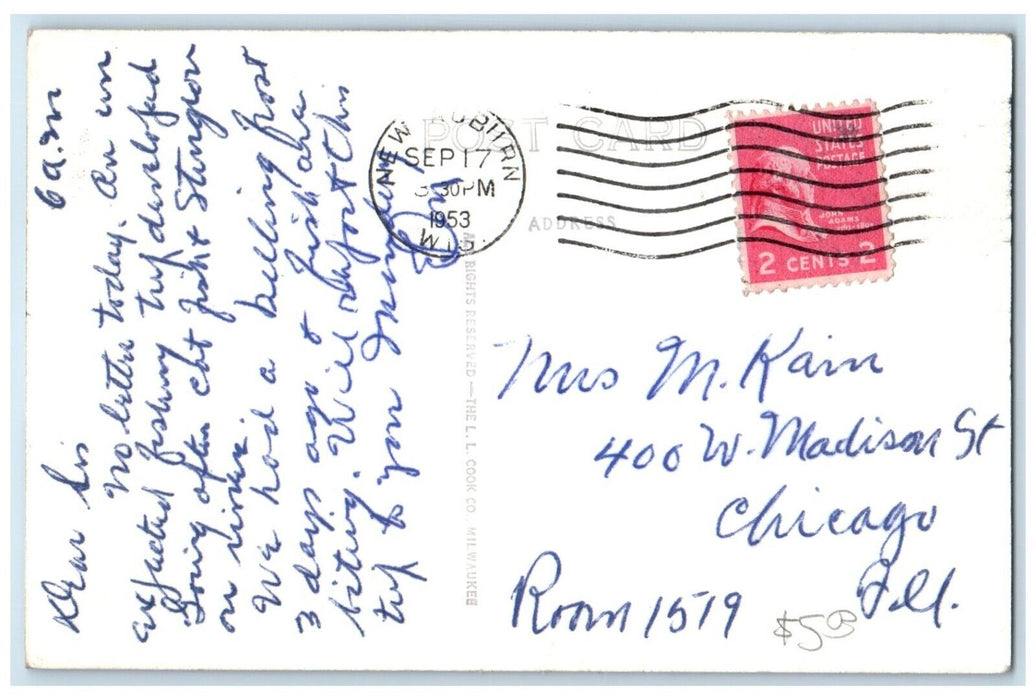 6 a.m
Dear Sis
No letter today. An un
expected fishing trip developed
Going after cat fish & Sturgeon
on river.
We had a killing frost
3 days ago & fish are
biting. Will report this
trip to you
POST CARD
ADDRESS
NEW AUBURN
SEP 17
30 PM
1953
WIS.
UNITED
STATES
POSTAGE
JOHN
ADAMS
2 CENTS 2
ALL RIGHTS RESERVED — THE L. L. COOK CO., MILWAUKEE
Mrs M. Kain
400 W. Madison St
Chicago
Room 1519 Ill.
$5.00